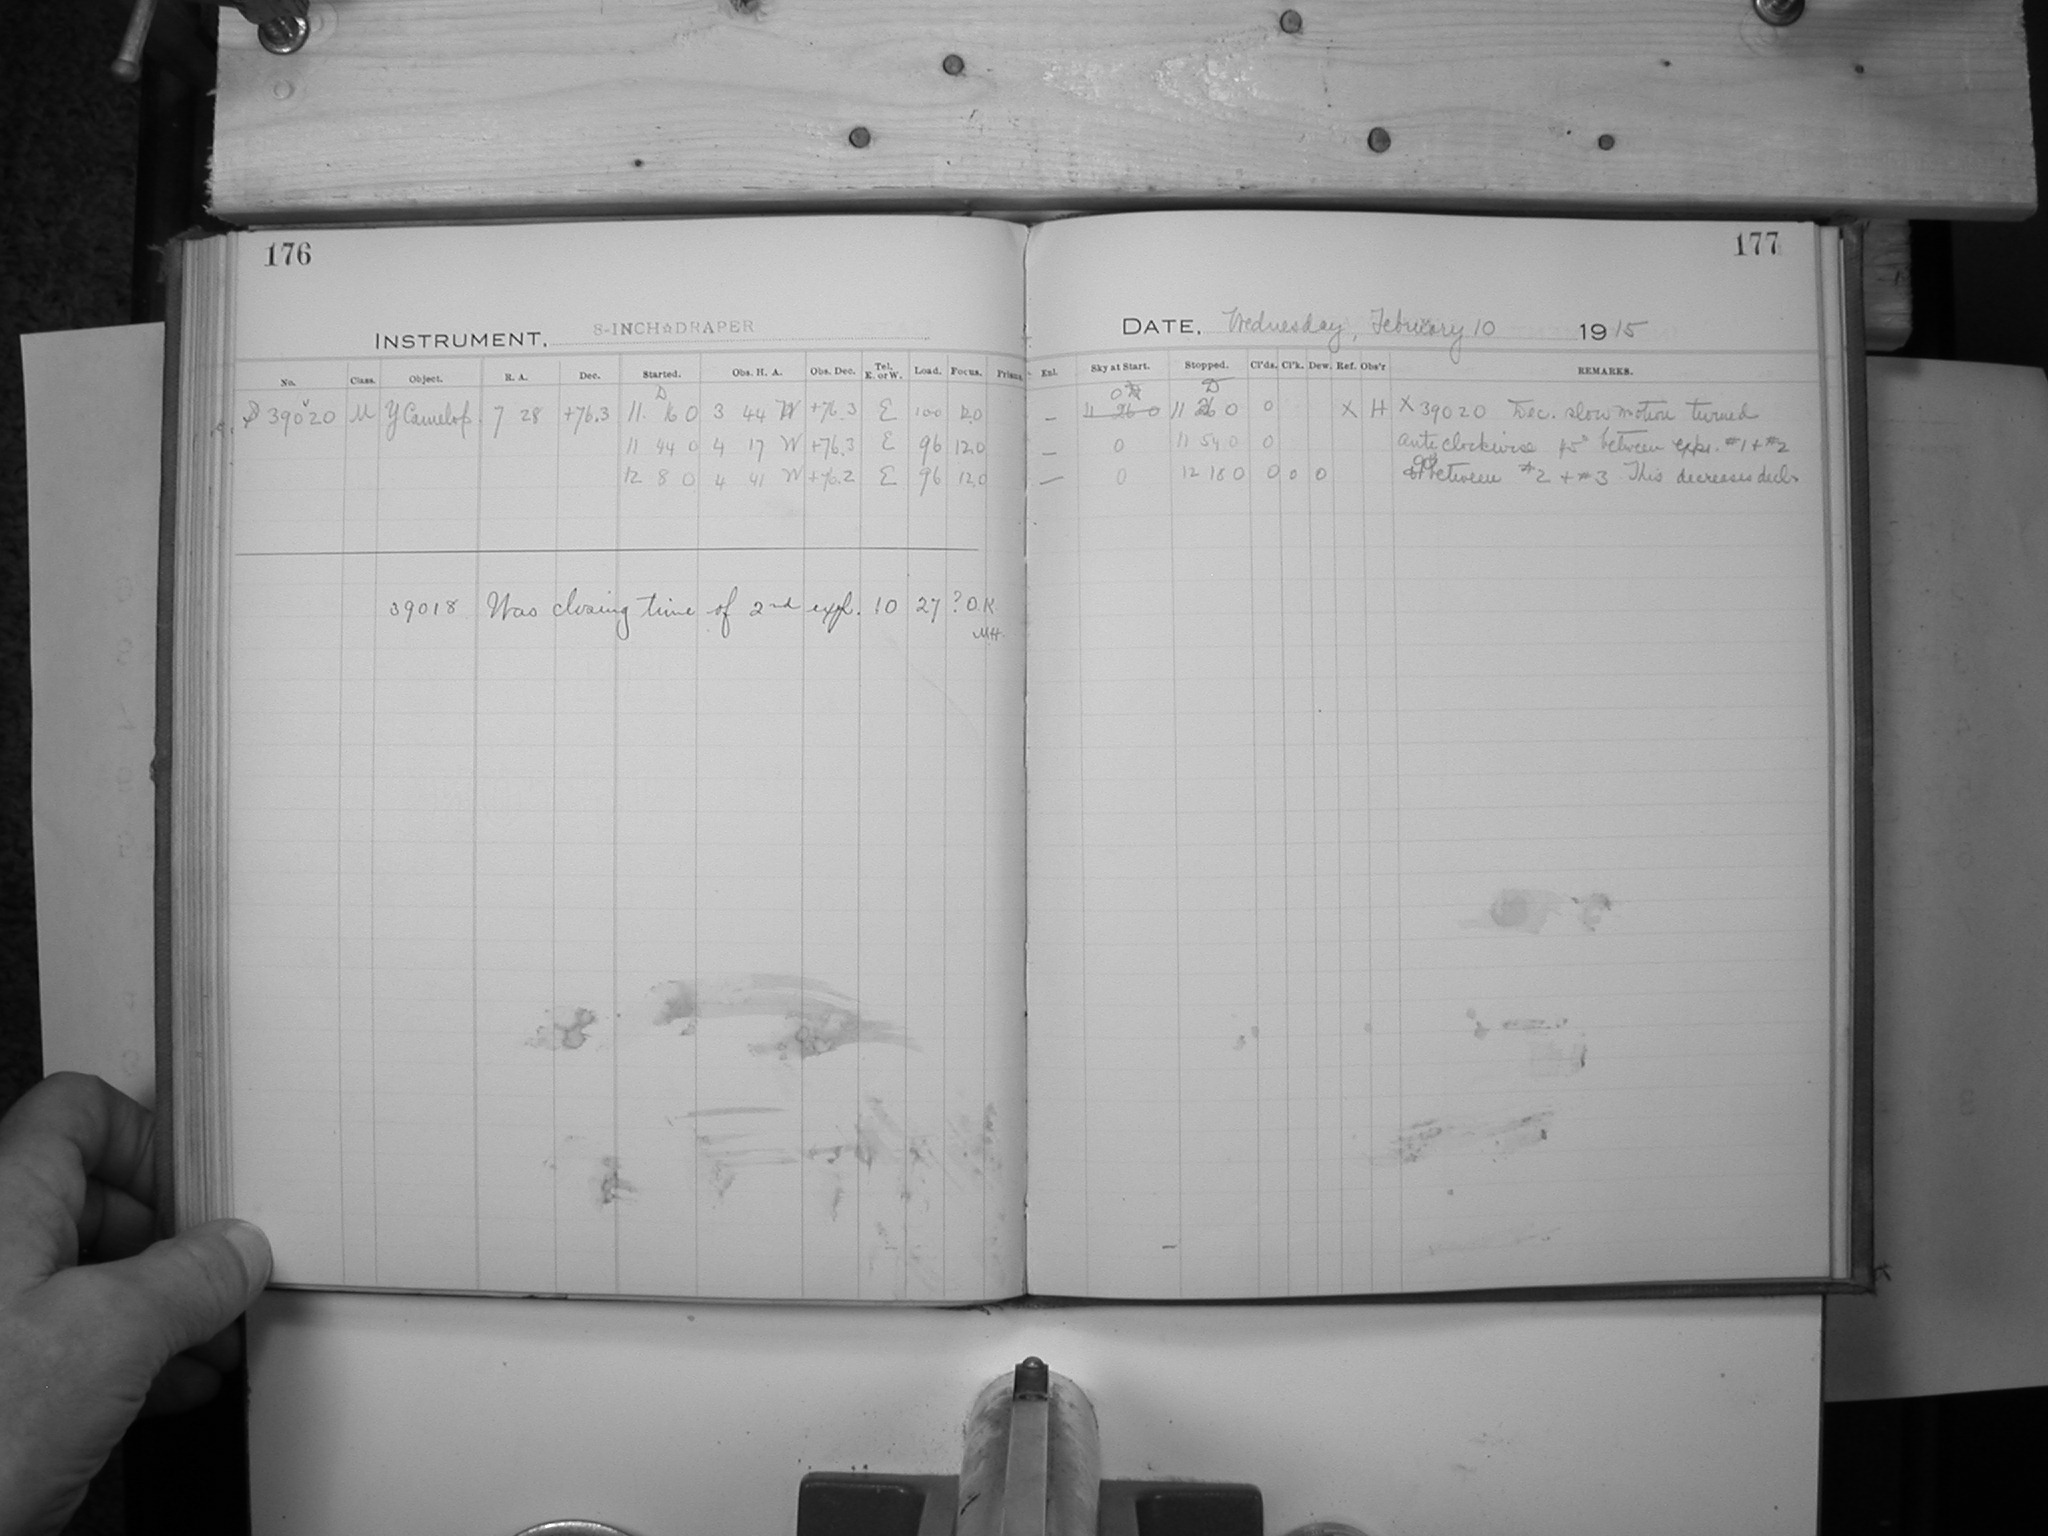 176
177
INSTRUMENT, 8-INCH☆DRAPER
DATE, Wednesday, February 10 1915
No. Class. Object. R. A. Dec. Started. Obs. H. A. Obs. Dec. Tel. E. or W. Load. Focus. Prism.
Enl. Sky at Start. Stopped. Cl'ds. Cl'k. Dew. Ref. Obs'r REMARKS.
39020 M Y Camelop. 7 28 +76.3 11 16 0 3 44 W +76.3 E 100 12.0
— 11 26 0 11 26 0 0 X H X 39020 Dec. slow motion turned
11 44 0 4 17 W +76.3 E 96 12.0
— 0 11 54 0 0 anticlockwise 45° between exps. #1 + #2
12 8 0 4 41 W +76.2 E 96 12.0
— 0 12 18 0 0 0 0 between #2 + #3 This decreases decl.
39018 Was closing time of 2nd exp. 10 27 ? O.K.
MH.